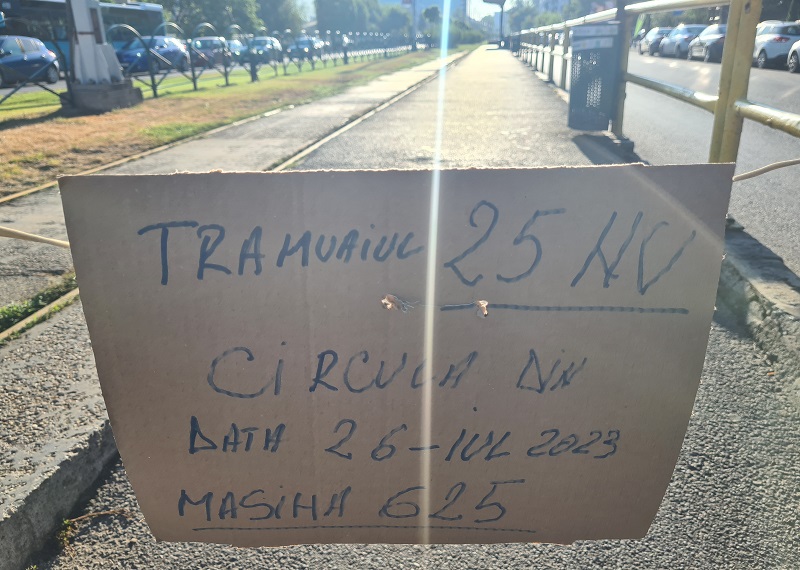 TRAMVAiUL 25 NU
CiRCULA DiN
DATA 26-iUL 2023
MASiNA 625